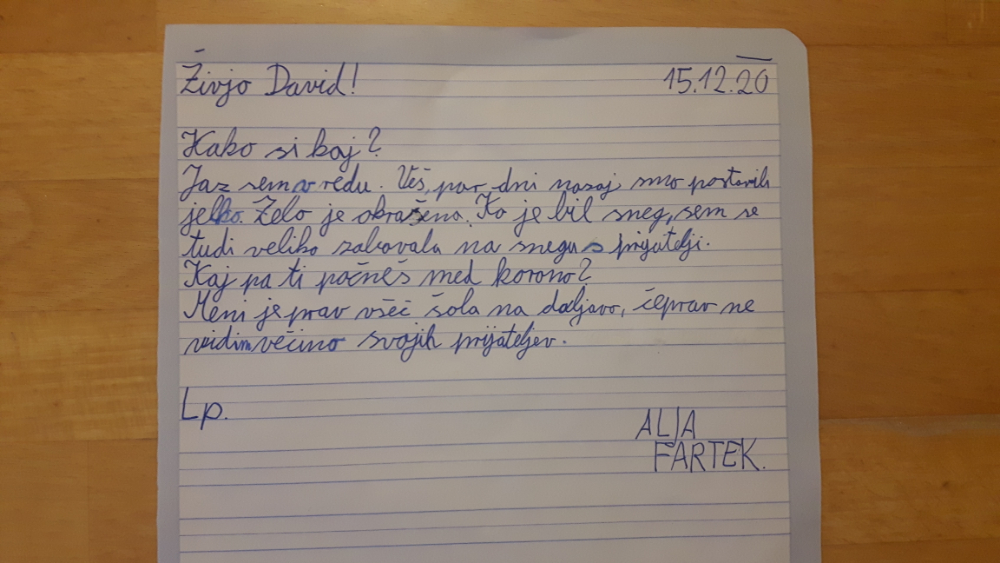 Živjo David! 15.12.20
Kako si kaj?
Jaz sem v redu. Veš, par dni nazaj smo postavili
jelko. Zelo je okrašena. Ko je bil sneg, sem se
tudi veliko zabavala na snegu s prijatelji.
Kaj pa ti počneš med korono?
Meni je prav všeč šola na daljavo, čeprav ne
vidim večino svojih prijateljev.
Lp.
ALJA
FARTEK.